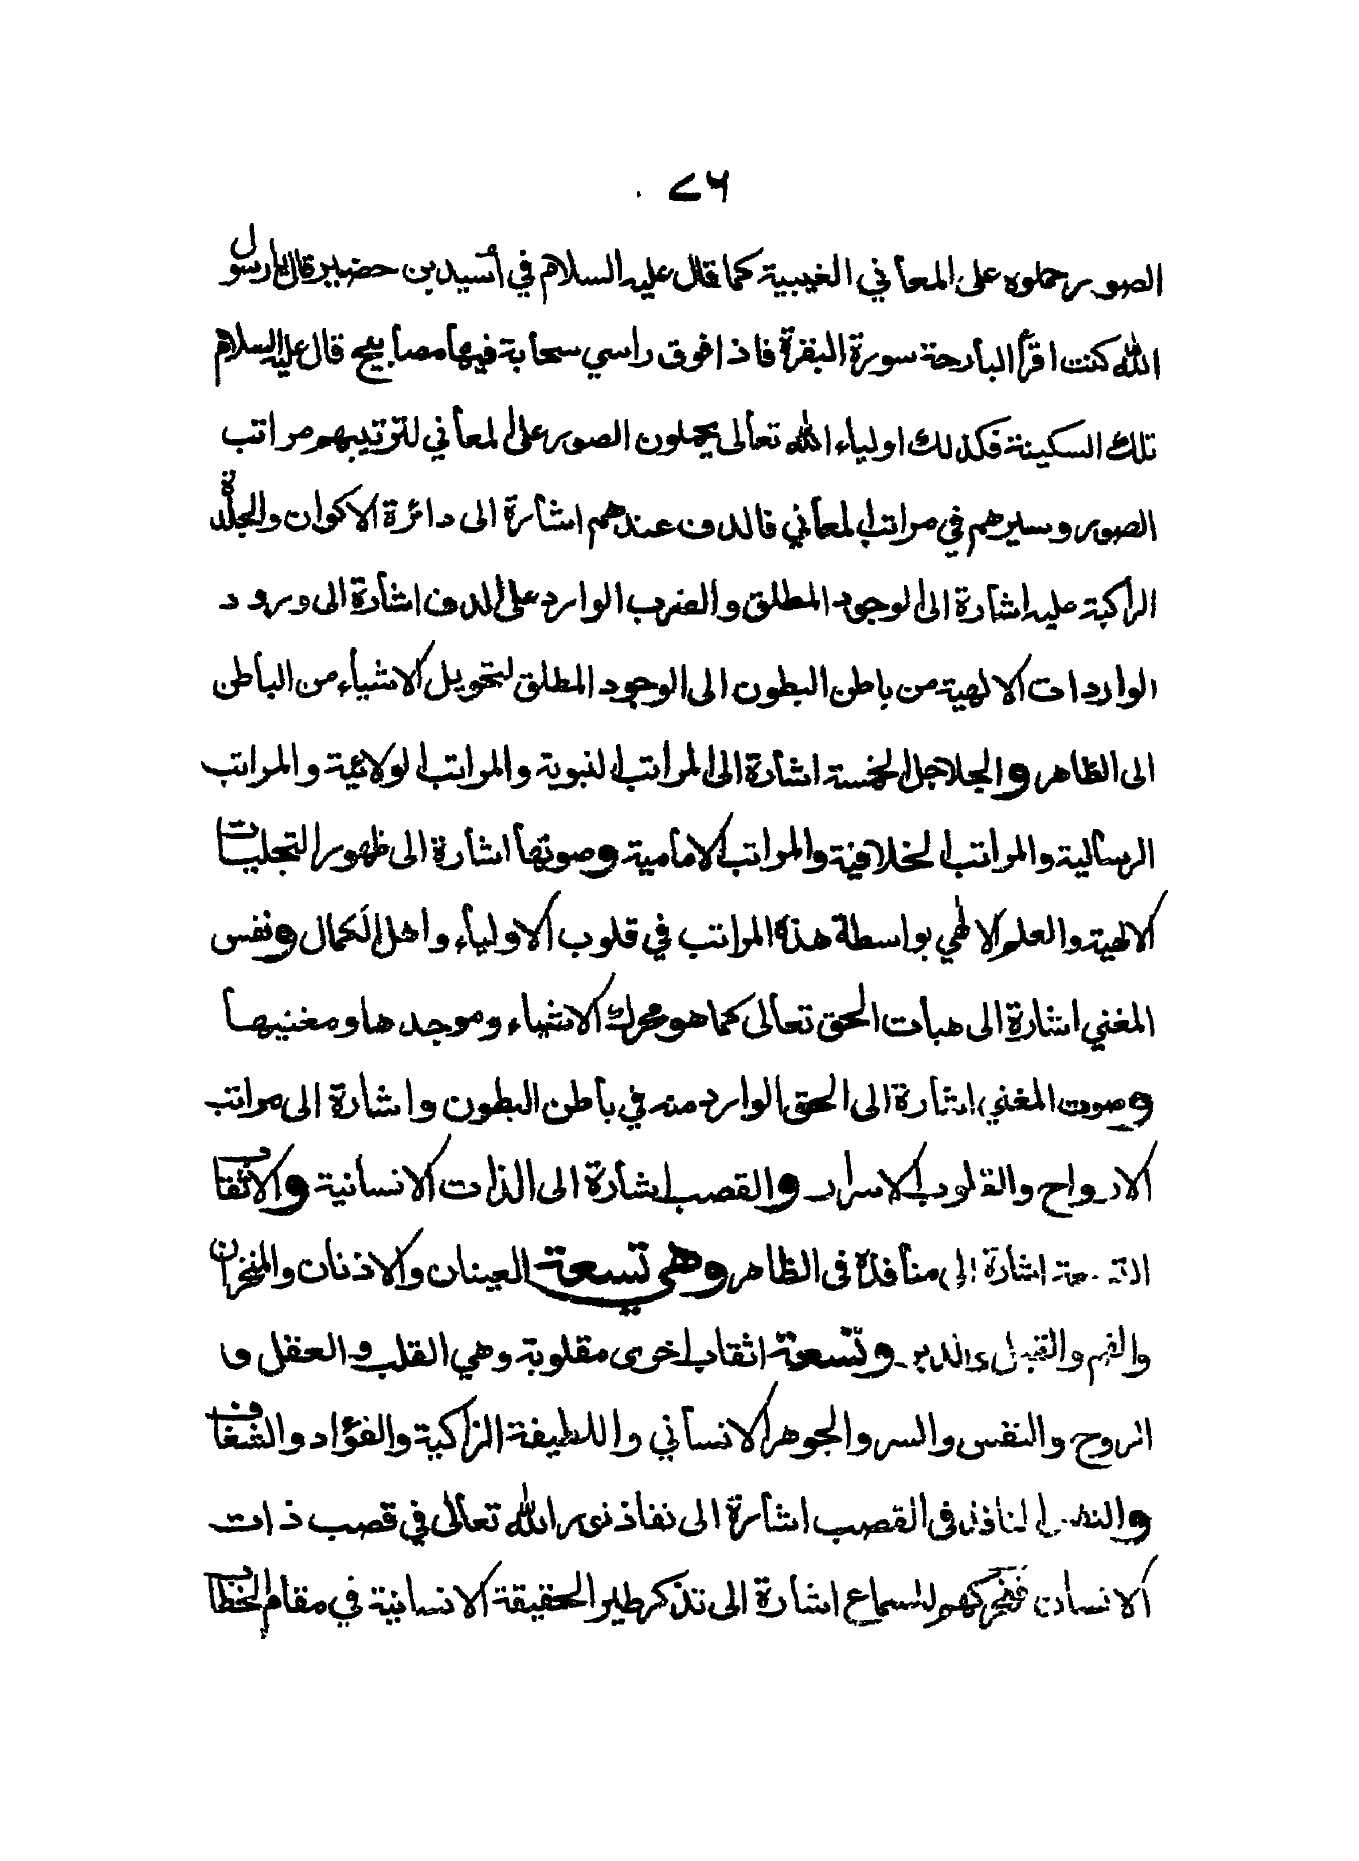 ٧٦
الصور حملوه على المعاني الغيبية كما قال عليه السلام في أُسيد بن حضير قال يا رسول
الله كنت اقرأ البارحة سورة البقرة فاذا فوق راسي سحابة فيها مصابيح قال عليه السلام
تلك السكينة فكذلك اولياء الله تعالى يحملون الصور على المعاني لترتيبهم مراتب
الصور وسيرهم في مراتب المعاني فالدف عندهم اشارة الى دائرة الاكوان والجلدة
الراكبة عليه اشارة الى الوجود المطلق والضرب الوارد على الدف اشارة الى ورود
الواردات الالهية من باطن البطون الى الوجود المطلق لتحويل الاشياء من الباطن
الى الظاهر والجلاجل الخمسة اشارة الى المراتب النبوية والمراتب الولائية والمراتب
الرسالية والمراتب الخلافية والمراتب الامامية وصوتها اشارة الى ظهور التجليات
الالهية والعلم الالهي بواسطة هذه المراتب في قلوب الاولياء واهل الكمال ونفس
المغني اشارة الى هبات الحق تعالى كما هو محرك الاشياء وموجدها ومغنيها
وصوت المغني اشارة الى الحق الوارد منه في باطن البطون واشارة الى مراتب
الارواح والقلوب الاسرار والقصب اشارة الى الذات الانسانية والاثقاب
التسعة اشارة الى منافذه في الظاهر وهي تسعة العينان والاذنان والمنخران
والفم والقبل والدبر وتسعة اثقاب اخرى مقلوبة وهي القلب والعقل و
الروح والنفس والسر والجوهر الانساني واللطيفة الزاكية والفؤاد والشغاف
والنفس النافذ في القصب اشارة الى نفاذ نور الله تعالى في قصب ذات
الانسان فتحركهم للسماع اشارة الى تذكر طير الحقيقة الانسانية في مقام الخطاب